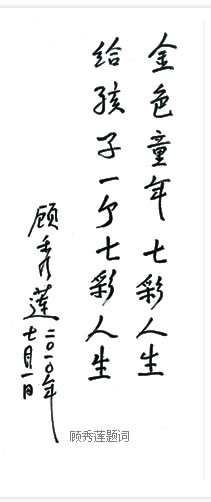 金色童年 七彩人生
给孩子一个七彩人生
顾秀莲
二〇一〇年
七月一日
顾秀莲题词